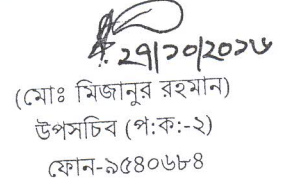 ২৭/১০/২০১৬
(মোঃ মিজানুর রহমান)
উপসচিব (প:ক:-২)
ফোন-৯৫৪০৬৮৪